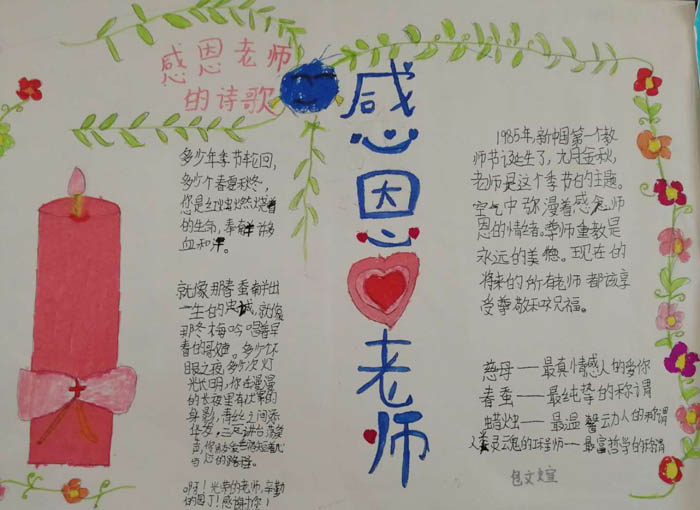 感恩老师
的诗歌
多少年季节轮回,
多少个春夏秋冬,
您是红烛燃烧着
的生命,奉献许多
血和汗。
就像那春蚕献出
一生的忠诚,就像
那冬梅吟唱着早
春的歌声。多少不
眠之夜,多少次灯
光长明,你在漫漫
的长夜里有伏案的
身影,青丝之间添
华发,三尺讲台
呀!光荣的老师,辛勤
的园丁!感谢你!
感
恩
老
师
1985年,新中国第一个教
师节诞生了,九月金秋,
老师是这个季节的主题。
空气中弥漫着感念师
恩的情绪。尊师重教是
永远的美德。现在的
将来的所有老师都该享
受尊敬和祝福。
慈母——最真情感人的
春蚕——最纯挚的称谓
蜡烛——最温馨动人的称谓
人类灵魂的工程师——最富哲学的称谓
包文煊